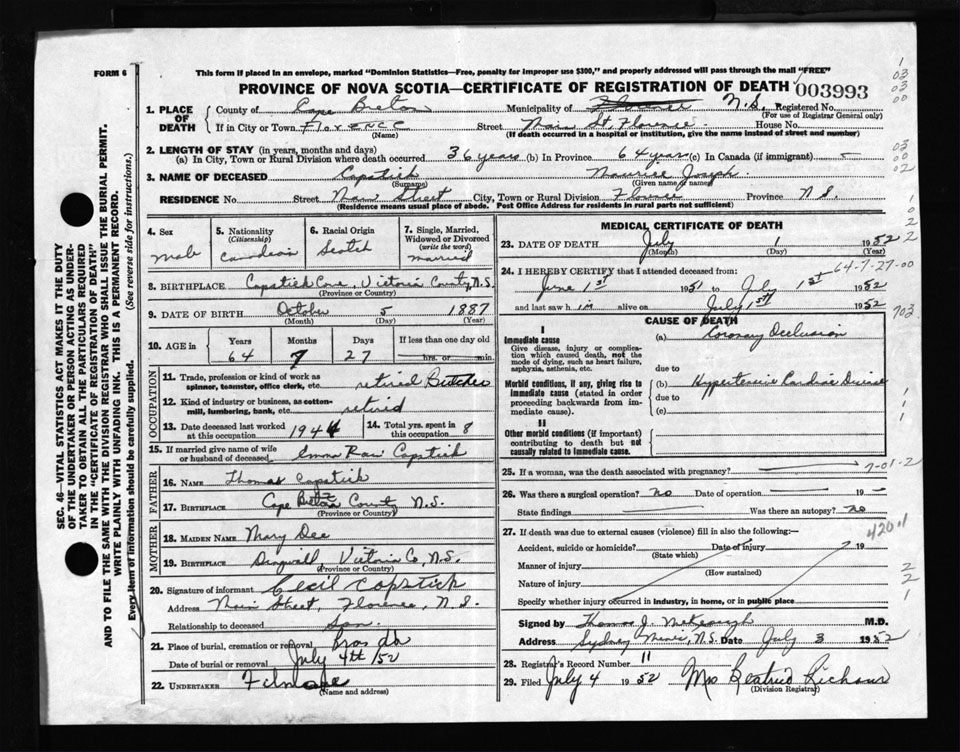 FORM 6
This form if placed in an envelope, marked "Dominion Statistics—Free, penalty for improper use $300," and properly addressed will pass through the mail "FREE"
PROVINCE OF NOVA SCOTIA—CERTIFICATE OF REGISTRATION OF DEATH 003993
1. PLACE OF DEATH
County of Cape Breton Municipality of N.S. Registered No.
(For use of Registrar General only)
If in City or Town Florence Street Main St, Florence House No.
(Name) (If death occurred in a hospital or institution, give the name instead of street and number)
2. LENGTH OF STAY (in years, months and days)
(a) In City, Town or Rural Division where death occurred 36 years (b) In Province 64 years (c) In Canada (if immigrant) -
3. NAME OF DECEASED Capstick Maurice Joseph
(Surname) (Given name or names)
RESIDENCE No. Street Main Street City, Town or Rural Division Florence Province N.S.
(Residence means usual place of abode. Post Office Address for residents in rural parts not sufficient)
SEC. 46—VITAL STATISTICS ACT MAKES IT THE DUTY
OF THE UNDERTAKER OR PERSON ACTING AS UNDER-
TAKER TO OBTAIN ALL THE PARTICULARS REQUIRED
IN THE "CERTIFICATE OF REGISTRATION OF DEATH"
AND TO FILE THE SAME WITH THE DIVISION REGISTRAR WHO SHALL ISSUE THE BURIAL PERMIT.
WRITE PLAINLY WITH UNFADING INK. THIS IS A PERMANENT RECORD.
Every item of information should be carefully supplied. (See reverse side for instructions.)
4. Sex male
5. Nationality (Citizenship) Canadian
6. Racial Origin Scotch
7. Single, Married, Widowed or Divorced (write the word) married
8. BIRTHPLACE Capstick Cove, Victoria County N.S.
(Province or Country)
9. DATE OF BIRTH October 5 1887
(Month) (Day) (Year)
10. AGE in Years Months Days If less than one day old
64 7 27 hrs. or min.
OCCUPATION
11. Trade, profession or kind of work as spinner, teamster, office clerk, etc. retired Butcher
12. Kind of industry or business, as cotton-mill, lumbering, bank, etc. retired
13. Date deceased last worked at this occupation 1944 14. Total yrs. spent in this occupation 8
15. If married give name of wife or husband of deceased Emma Rae Capstick
FATHER
16. NAME Thomas Capstick
17. BIRTHPLACE Cape Breton County N.S.
(Province or Country)
MOTHER
18. MAIDEN NAME Mary Dee
19. BIRTHPLACE Dingwall Victoria Co, N.S.
(Province or Country)
20. Signature of informant Cecil Capstick
Address Main Street, Florence, N.S.
Relationship to deceased Son
21. Place of burial, cremation or removal Bras dor
Date of burial or removal July 4th/52
22. UNDERTAKER
(Name and address)
MEDICAL CERTIFICATE OF DEATH
23. DATE OF DEATH July 1 1952
(Month) (Day) (Year)
64-7-27-00
24. I HEREBY CERTIFY that I attended deceased from:
June 1st 1951 to July 1st 1952
and last saw him alive on July 1st 1952
703
CAUSE OF DEATH
I
Immediate cause
Give disease, injury or complication which caused death, not the mode of dying, such as heart failure, asphyxia, asthenia, etc.
(a) Coronary Occlusion
due to
Morbid conditions, if any, giving rise to immediate cause (stated in order proceeding backwards from immediate cause).
(b) Hypertensive Cardiac Disease
due to
(c)
II
Other morbid conditions (if important) contributing to death but not causally related to immediate cause.
25. If a woman, was the death associated with pregnancy?
7-01-2
26. Was there a surgical operation? no Date of operation 19 -
State findings Was there an autopsy? no
27. If death was due to external causes (violence) fill in also the following:—
420.1
Accident, suicide or homicide? Date of injury 19
(State which)
Manner of injury
(How sustained)
Nature of injury
Specify whether injury occurred in industry, in home, or in public place
Signed by Thomas J. McKeough M.D.
Address Sydney Mines, N.S. Date July 3 1952
28. Registrar's Record Number 11
29. Filed July 4 1952 Mrs Beatrice
(Division Registrar)